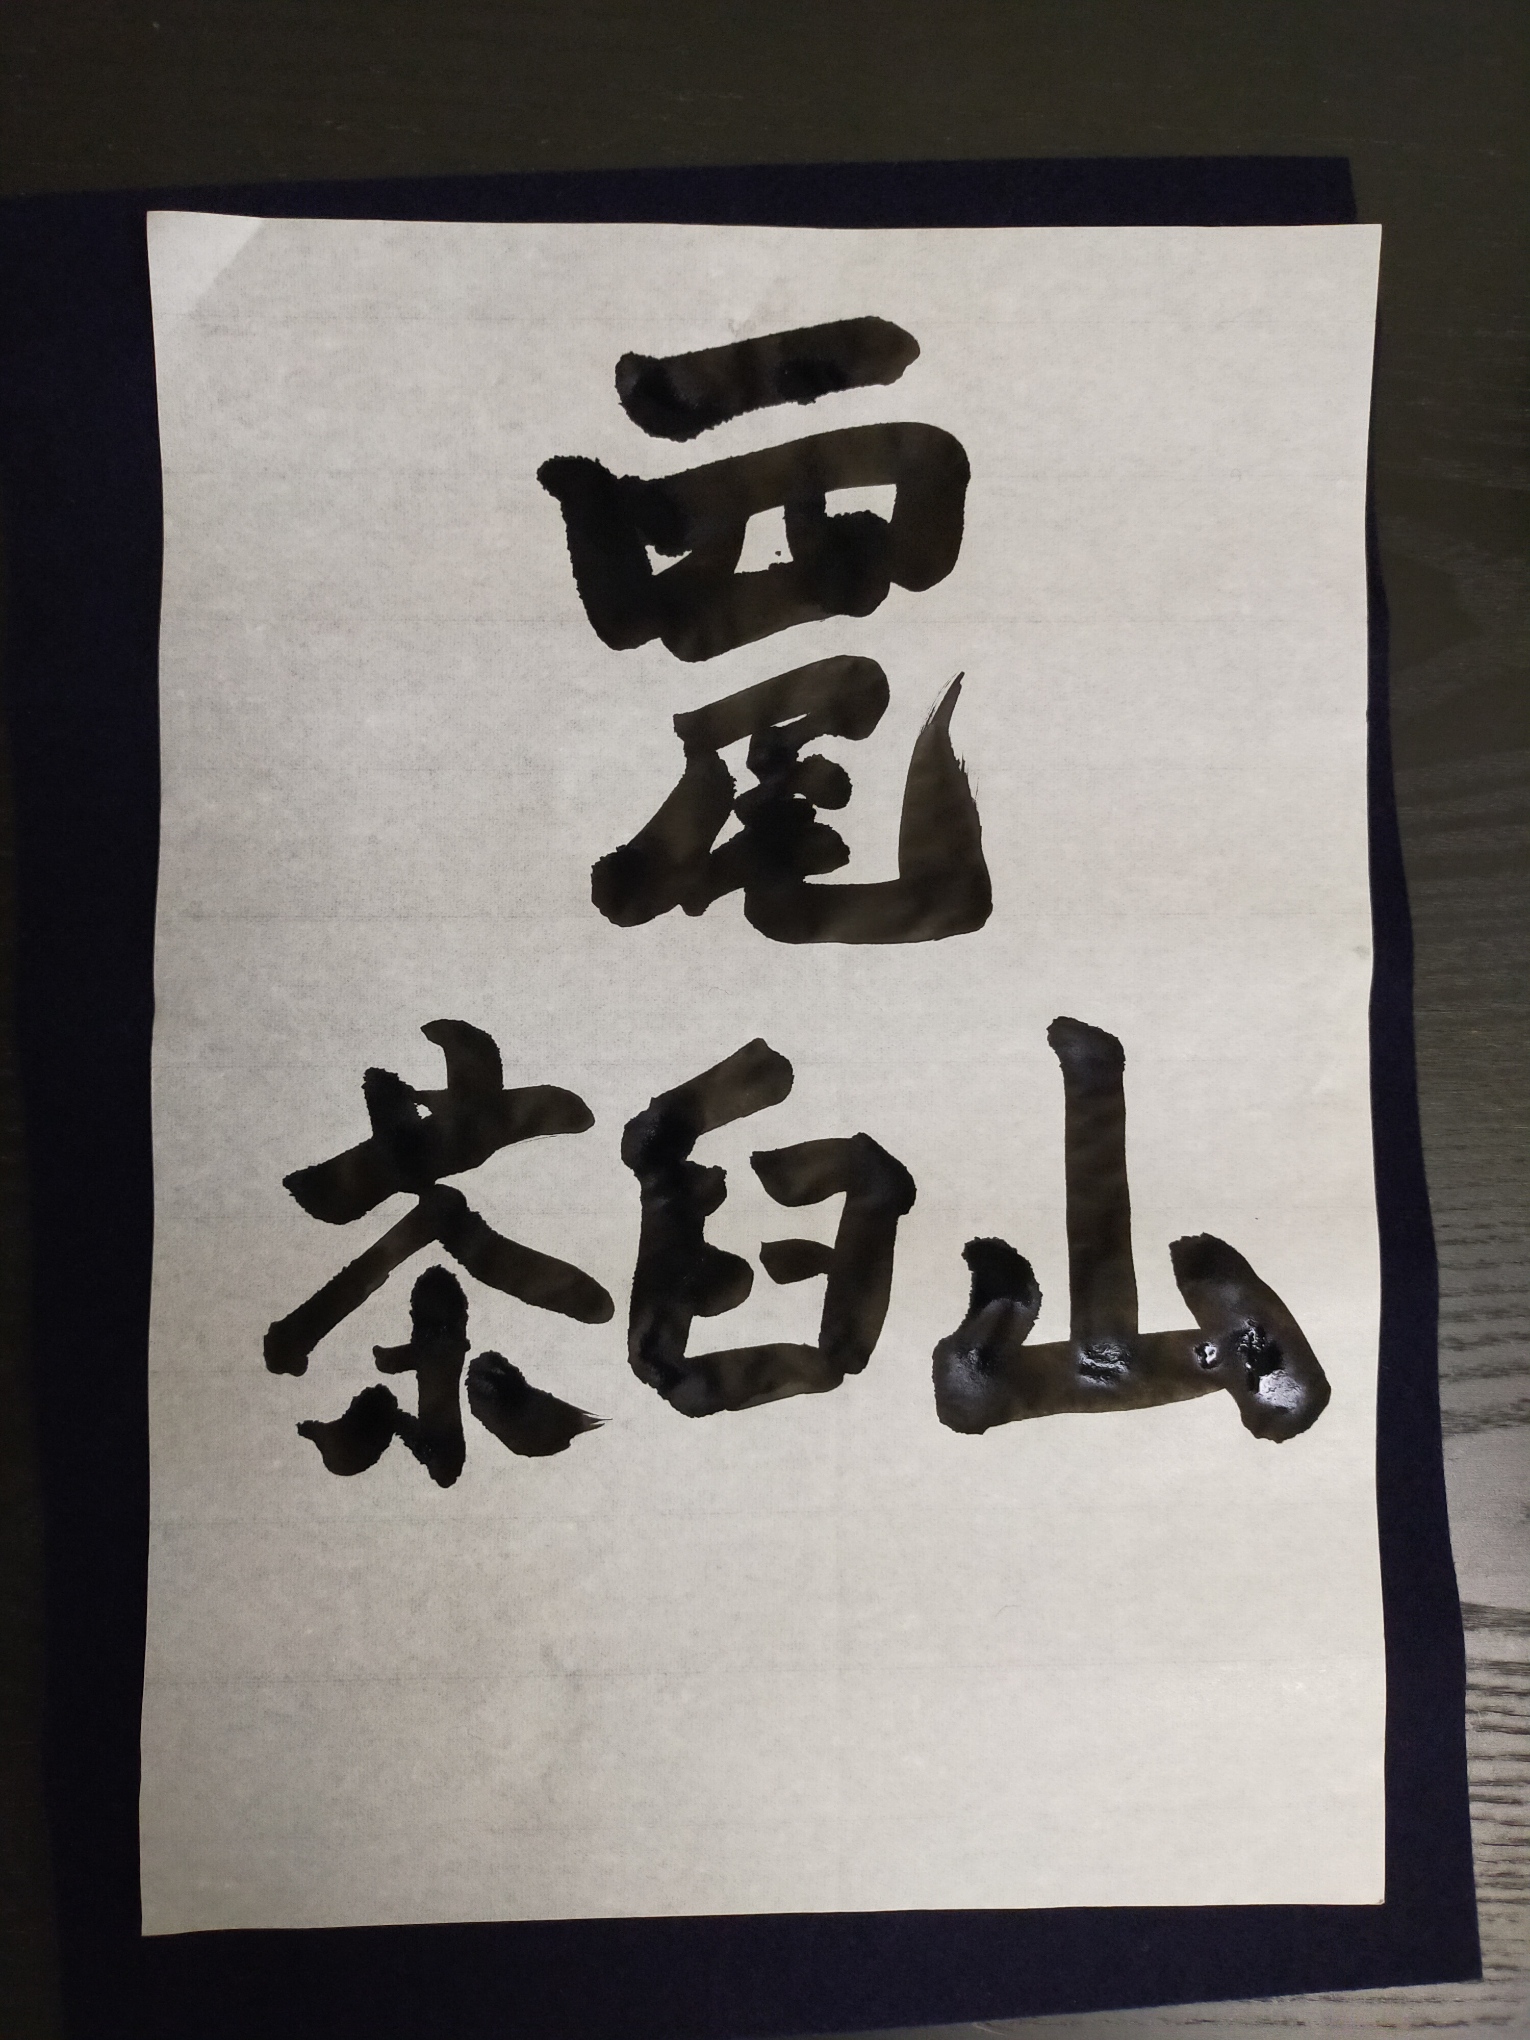 西尾
茶臼山